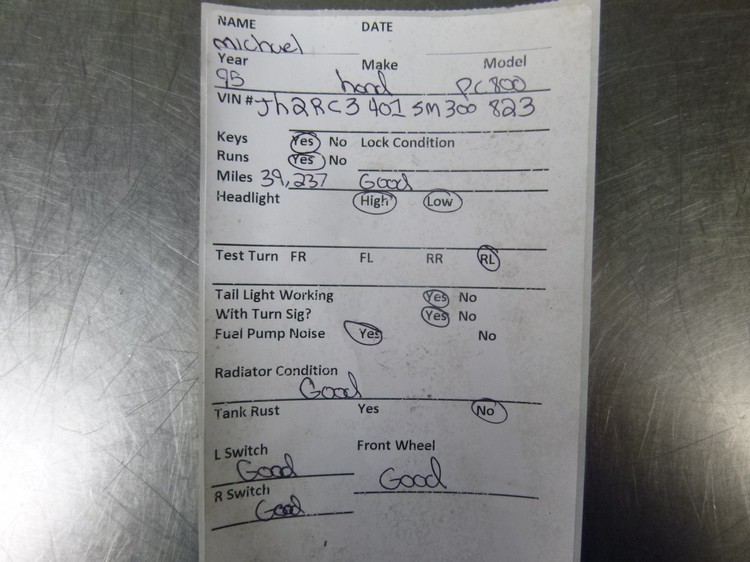 NAME DATE
michael
Year Make Model
95 hond PC800
VIN # Jh2RC3 401 SM300 823
Keys Yes No Lock Condition
Runs Yes No
Miles 39,237 Good
Headlight High Low
Test Turn FR FL RR RL
Tail Light Working Yes No
With Turn Sig? Yes No
Fual Pump Noise Yes No
Radiator Condition
Good
Tank Rust Yes No
L Switch Front Wheel
Good Good
R Switch
Good